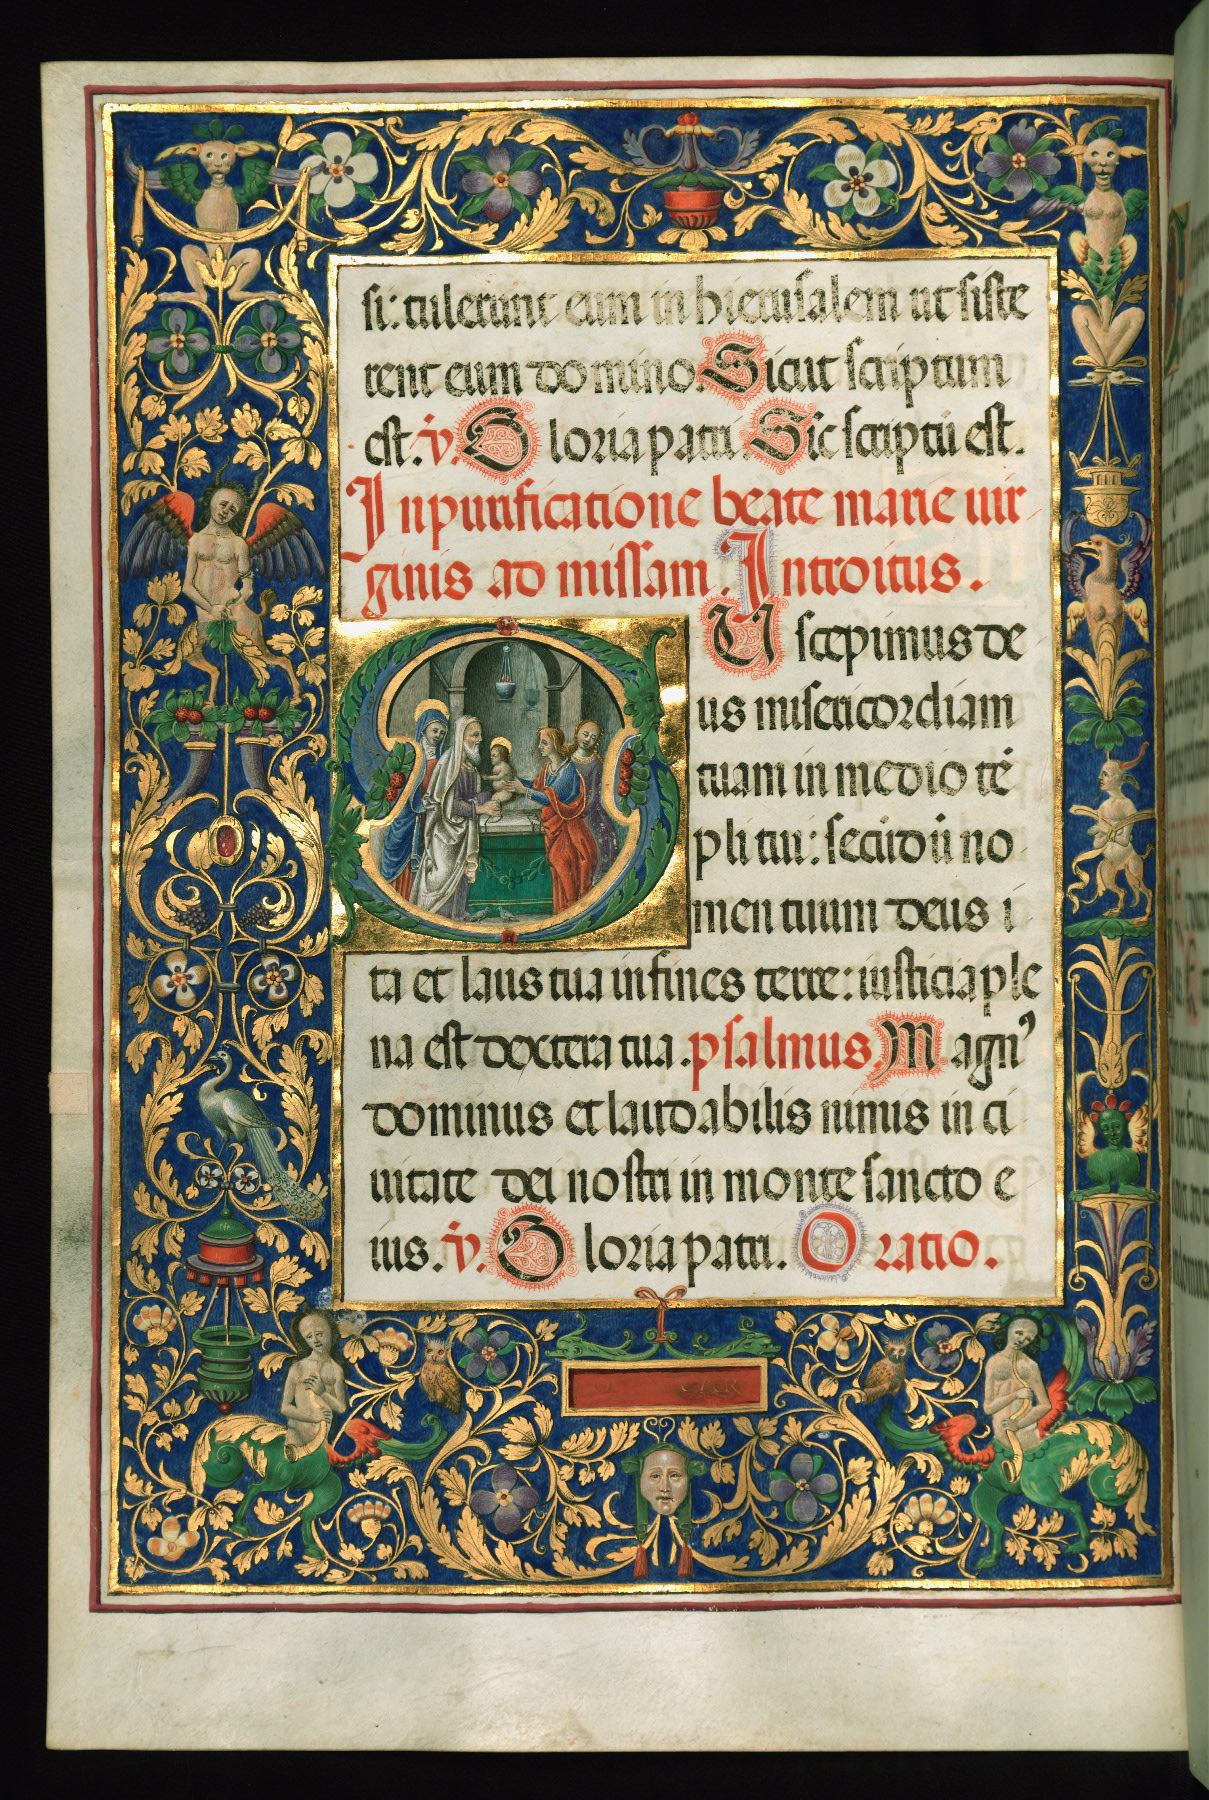 si: tulerunt eum in hierusalem ut siste
rent eum domino. Sicut scriptum
est. v. Gloria patri. Sic scriptū est.
In purificatione beate marie uir
ginis ad missam. Introitus.
Suscepimus de
us misericordiam
tuam in medio tē
pli tui: secūdū no
men tuum deus i
ta et laus tua in fines terre: iusticia ple
na est dextera tua. psalmus. Magnꝰ
dominus et laudabilis nimis in ci
uitate dei nostri in monte sancto e
ius. v. Gloria patri. Oratio.